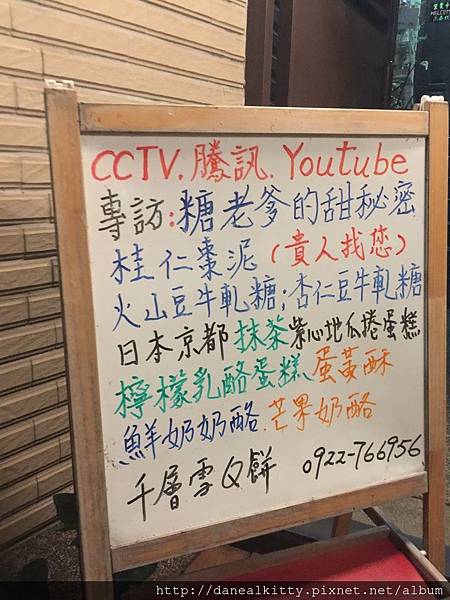 CCTV.騰訊.Youtube
專訪:糖老爹的甜秘密
桂仁棗泥(貴人找您)
火山豆牛軋糖;杏仁豆牛軋糖
日本京都抹茶紫心地瓜捲蛋糕
檸檬乳酪蛋糕蛋黃酥
鮮奶奶酪.芒果奶酪
千層雪Q餅 0922-766956
WELCOME
http://danealkitty.pixnet.net/album